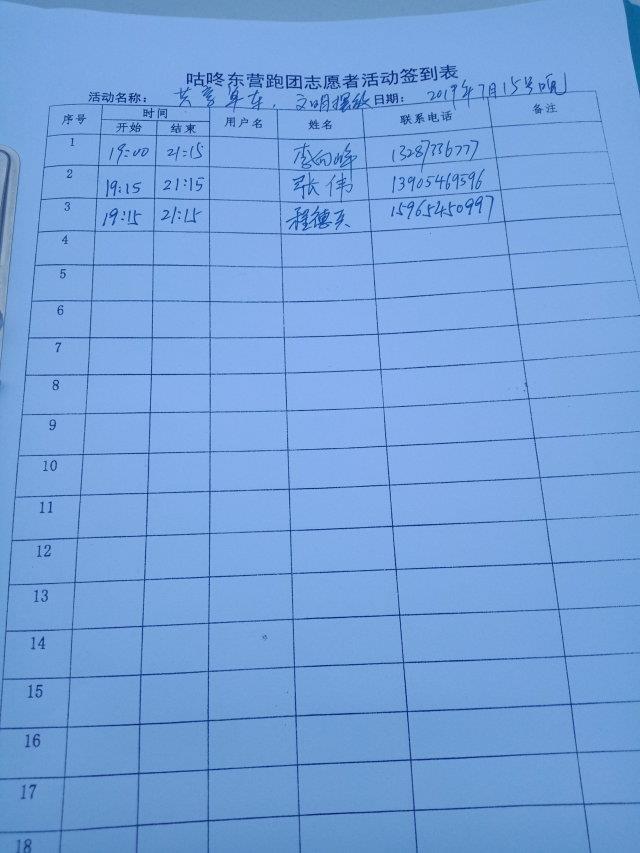 咕咚东营跑团志愿者活动签到表
活动名称： 共享单车，文明摆放 日期： 2019年7月15号晚
序号 时间 用户名 姓名 联系电话 备注
开始 结束
1 19:00 21:15 李向峰 13287336777
2 19:15 21:15 张伟 13905469596
3 19:15 21:15 程德 15965450997
4
5
6
7
8
9
10
11
12
13
14
15
16
17
18